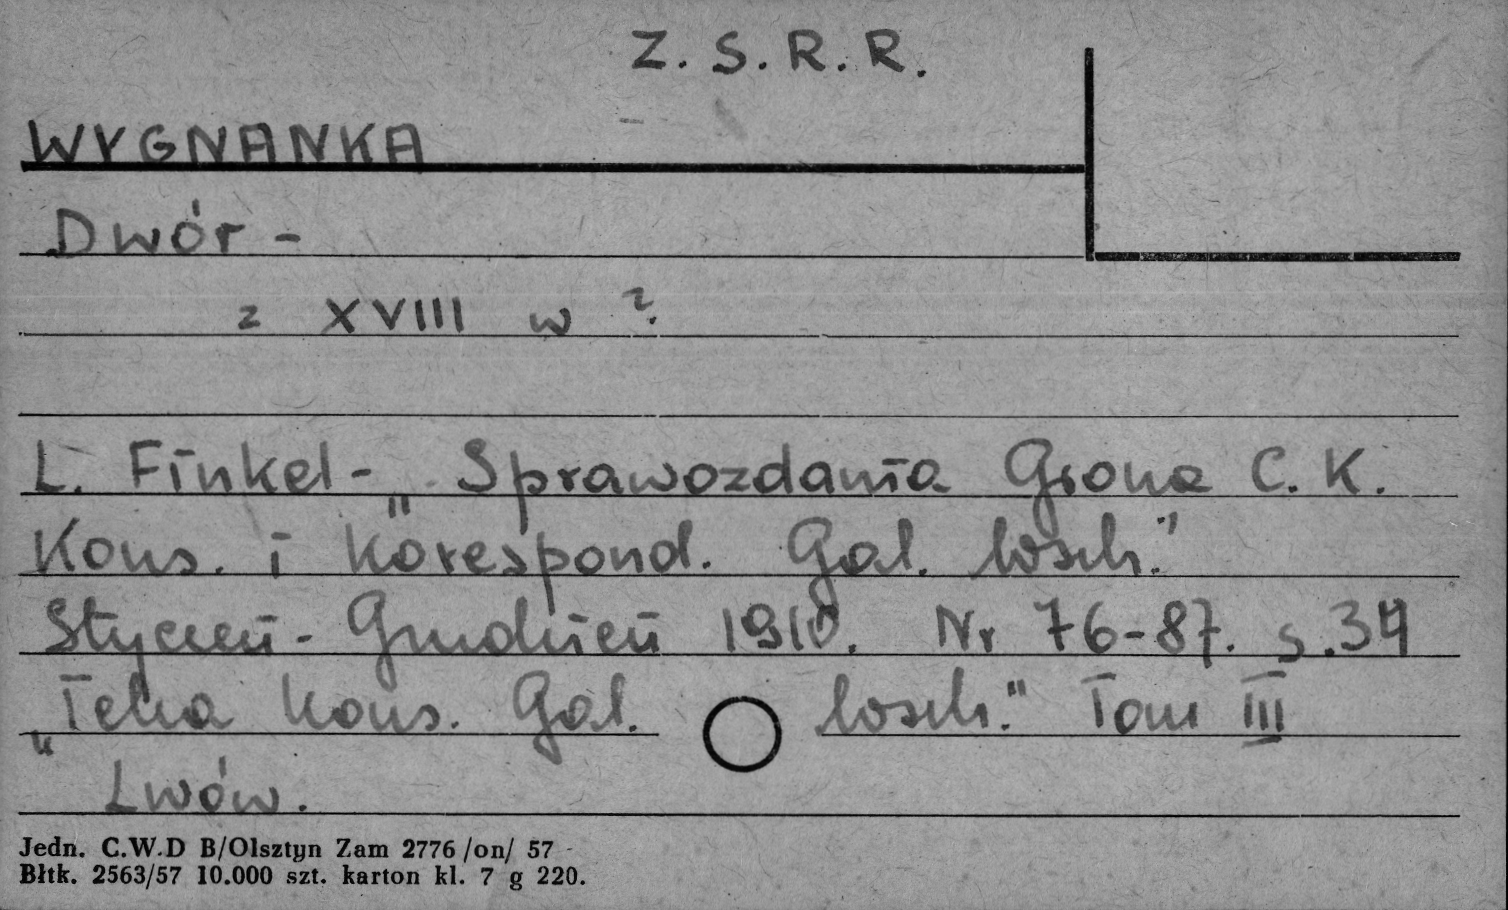 Z. S. R. R.
WYGNANKA
Dwór -
z XVIII w ?
L. Finkel - „Sprawozdania Grona C. K.
Kons. i Korespond. Gal. wsch."
Styczeń - Grudzień 1910. Nr 76-87. s. 34
„Teka Kons. Gal. wsch." Tom III
Lwów.
Jedn. C.W.D B/Olsztyn Zam 2776 /on/ 57
Błtk. 2563/57 10.000 szt. karton kl. 7 g 220.